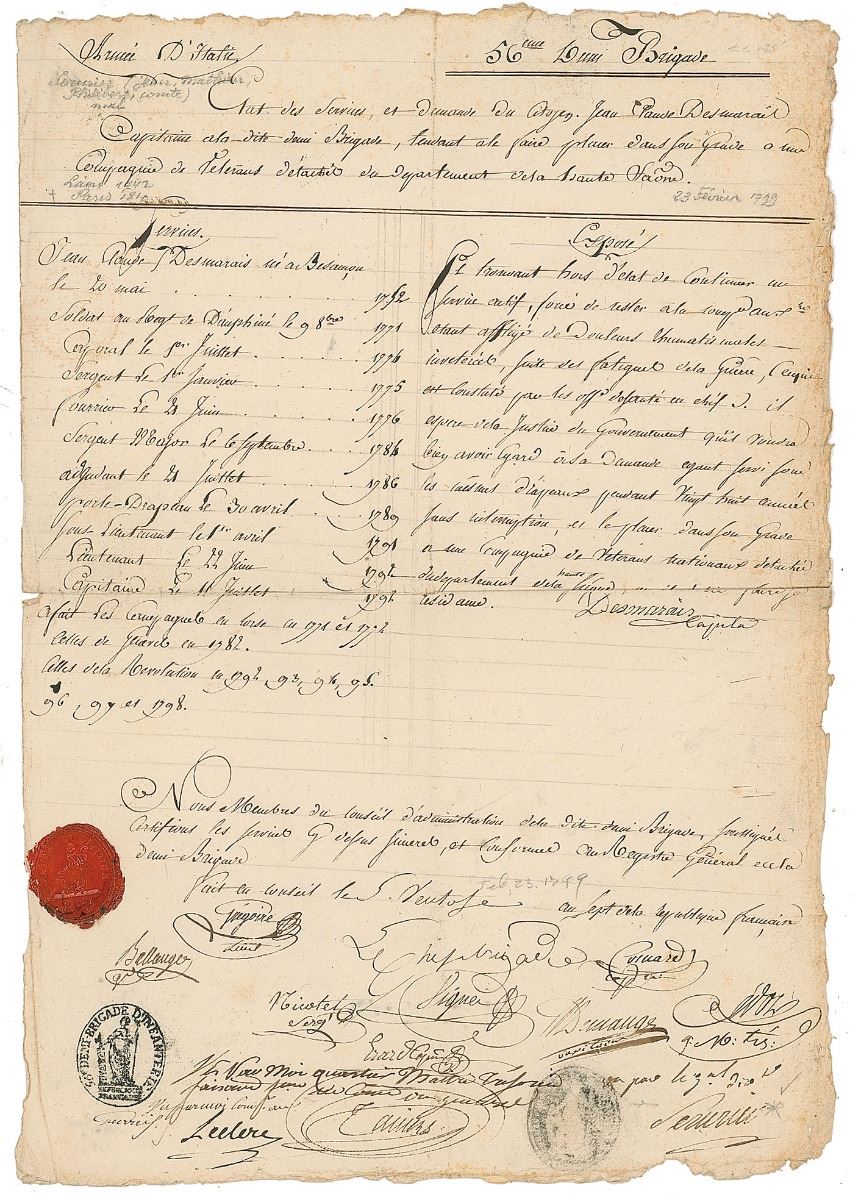 Armée D'Italie
56eme Demi Brigade
Serurier (Jean, Mathieu,
Philibert, comte)
mal
Etat des Services, et demande du Citoyen Jean Claude Desmarais
Capitaine a la dite demi Brigade, tendant a le faire placer dans son Grade a une
Compagnie de Veterans détachée du departement de la haute Saône.
Laon 1742
+ Paris
23 Février 1799
Services.
Jean Claude Desmarais né a Besançon
le 20 mai 1752
Soldat au Regt de Dauphiné le 9 8bre 1771
Caporal le 1er Juillet
Sergent le 1er Janvier 1775
fourrier Le 21 Juin 1776
Sergent Major Le 6 Septembre 1784
adjudant le 21 Juillet 1786
porte-Drapeau Le 30 avril 1789
sous Lieutenant le 1er avril 1791
Lieutenant Le 22 Juin 1792
Capitaine Le 11 Juillet 1792
a fait Les Campagnes en Corse en 1771 et 1772
Celles de en 1782.
Celles de la Revolution en 1792, 93, 94, 95.
96, 97 et 1798.
Exposé
Se trouvant hors d'état de Continuer un
service actif, forcé de rester a la
etant affligé de Douleurs rhumatismales
inveterées, suite des fatigues de la Guerre,
est Constaté par les offrs de santé en chef. il
espere de la Justice du Gouvernement qu'il voudra
bien avoir Egard à sa demande ayant servi sous
les mêmes drapeaux pendant Vingt huit années
sans interruption, et le placer dans son Grade
a une Compagnie de Veterans nationaux detachée
du departement de la haute
Desmarais
Capite
Nous Membres du Conseil d'administration de la dite demi Brigade, soussignés
Certifions les services Cy dessus sinceres, et Conformes au Registre Général de la
demi Brigade.
Fait en Conseil le 5. Ventose an Sept de la republique française
Feb 23. 1799
Grégoire
Lieut
Le Chef brigade
Bellanger
Nicotel
Sergt
Demange
Capitaine
Vu par Moi quartier Maitre Trésorier
vu par le gal divre
56e DEMI-BRIGADE D'INFANTERIE
REPUBLIQUE
FRANÇAISE
Leclerc
Serurier